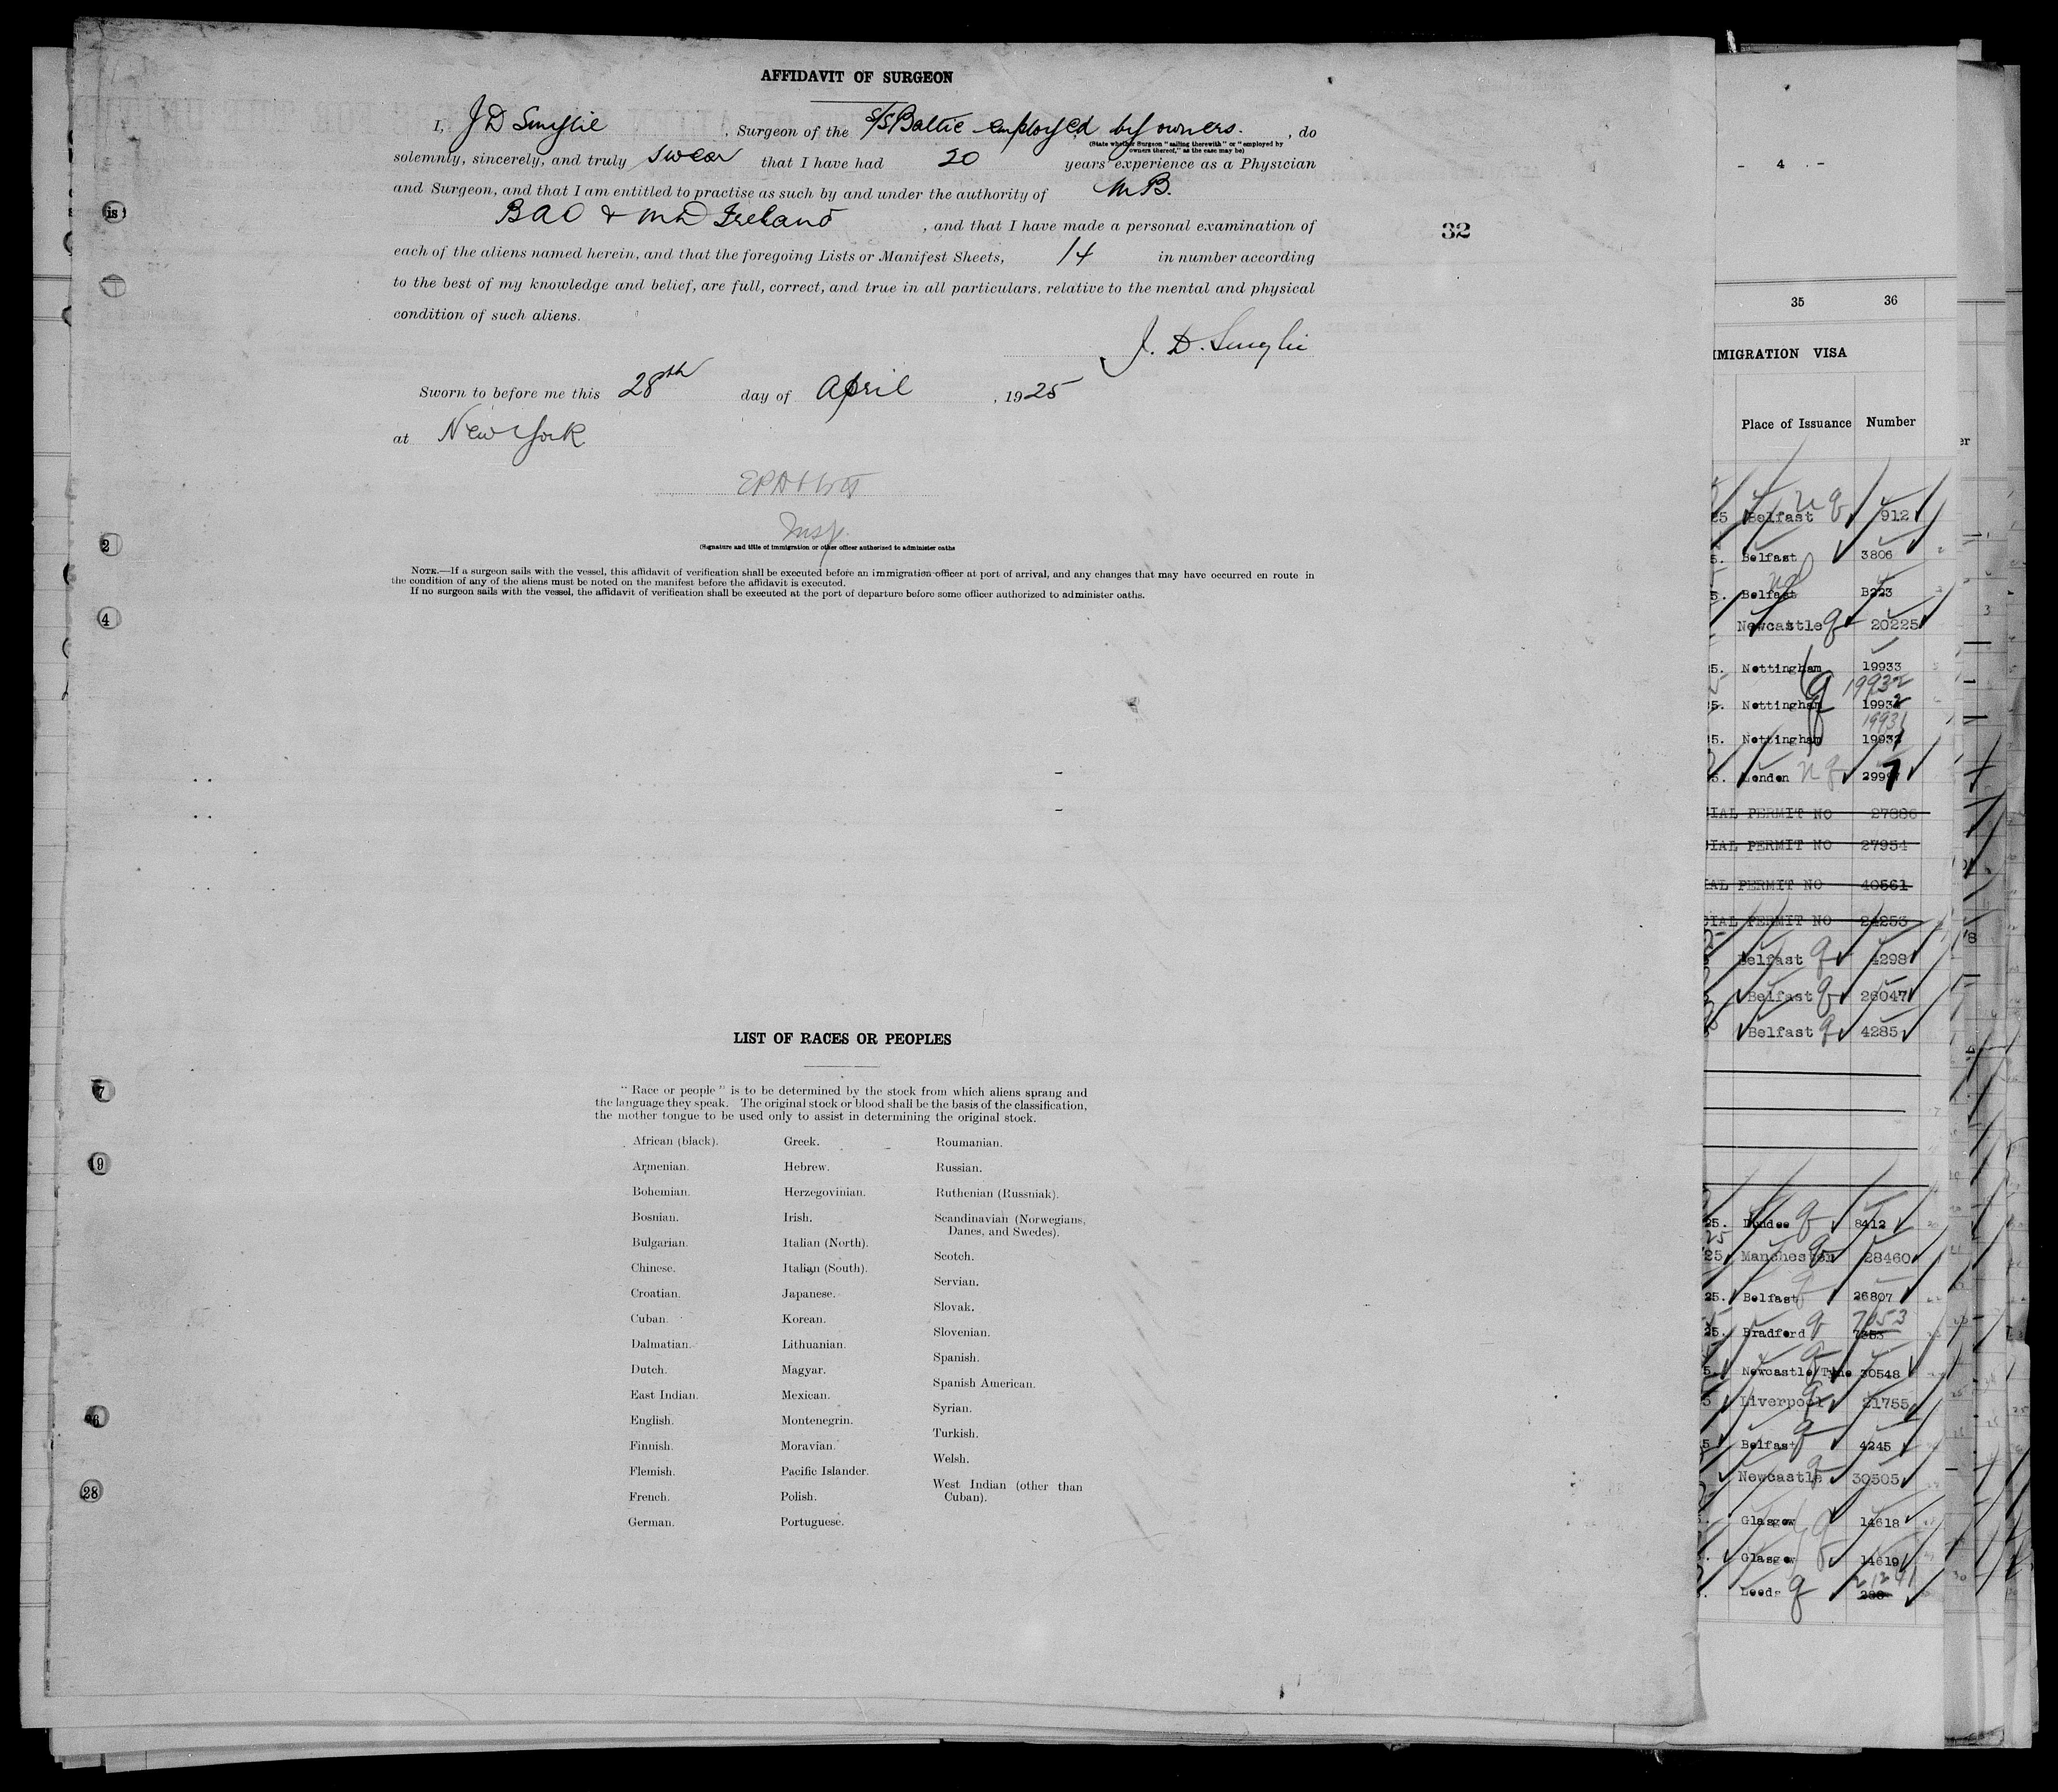 AFFIDAVIT OF SURGEON
I, J D Smylie, Surgeon of the S/S Baltic employed by owners., do
(State whether Surgeon "sailing therewith" or "employed by
owners thereof," as the case may be)
solemnly, sincerely, and truly swear that I have had 20 years experience as a Physician
and Surgeon, and that I am entitled to practise as such by and under the authority of M B.
BAO & Ireland, and that I have made a personal examination of
32
each of the aliens named herein, and that the foregoing Lists or Manifest Sheets, 14 in number according
to the best of my knowledge and belief, are full, correct, and true in all particulars, relative to the mental and physical
condition of such aliens.
J. D. Smylie
Sworn to before me this 28th day of April, 1925
at New York
Insp.
(Signature and title of immigration or other officer authorized to administer oaths
NOTE.—If a surgeon sails with the vessel, this affidavit of verification shall be executed before an immigration officer at port of arrival, and any changes that may have occurred en route in
the condition of any of the aliens must be noted on the manifest before the affidavit is executed.
If no surgeon sails with the vessel, the affidavit of verification shall be executed at the port of departure before some officer authorized to administer oaths.
LIST OF RACES OR PEOPLES
"Race or people" is to be determined by the stock from which aliens sprang and
the language they speak. The original stock or blood shall be the basis of the classification,
the mother tongue to be used only to assist in determining the original stock.
African (black).
Armenian.
Bohemian.
Bosnian.
Bulgarian.
Chinese.
Croatian.
Cuban.
Dalmatian.
Dutch.
East Indian.
English.
Finnish.
Flemish.
French.
German.
Greek.
Hebrew.
Herzegovinian.
Irish.
Italian (North).
Italian (South).
Japanese.
Korean.
Lithuanian.
Magyar.
Mexican.
Montenegrin.
Moravian.
Pacific Islander.
Polish.
Portuguese.
Roumanian.
Russian.
Ruthenian (Russniak).
Scandinavian (Norwegians,
Danes, and Swedes).
Scotch.
Servian.
Slovak.
Slovenian.
Spanish.
Spanish American.
Syrian.
Turkish.
Welsh.
West Indian (other than
Cuban).
is
2
4
7
9
28
- 4 -
35 36
IMMIGRATION VISA
Place of Issuance Number
25 Belfast 912
5. Belfast 3806
5. Belfast B223
Newcastle 20225
5. Nottingham 19933
19932
5. Nottingham 19932
19931
5. Nottingham 19931
5. London 29997
CIAL PERMIT NO 27886
CIAL PERMIT NO 27954
IAL PERMIT NO 40561
CIAL PERMIT NO 24253
Belfast 4298
Belfast 26047
Belfast 4285
25. Dundee 8412
25 Manchester 28460
25. Belfast 26807
7053
25. Bradford
5. Newcastle/Tyne 30548
5 Liverpool 21755
5 Belfast 4245
Newcastle 30505
Glasgow 14618
Glasgow 14619
21241
Leeds